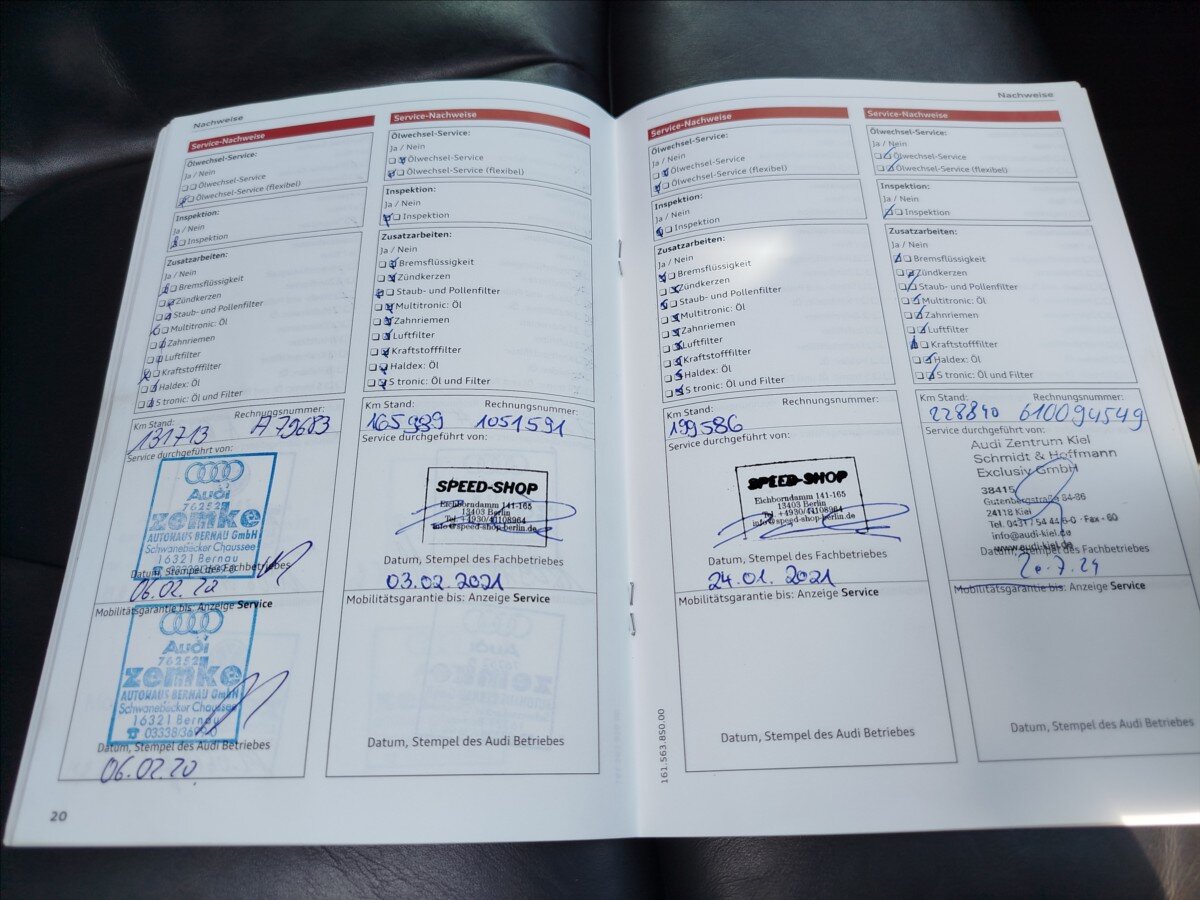 Nachweise
Service-Nachweise
Ölwechsel-Service:
Ja / Nein
Ölwechsel-Service
Ölwechsel-Service (flexibel)
Inspektion:
Ja / Nein
Inspektion
Zusatzarbeiten:
Ja / Nein
Bremsflüssigkeit
Zündkerzen
Staub- und Pollenfilter
Multitronic: Öl
Zahnriemen
Luftfilter
Kraftstofffilter
Haldex: Öl
S tronic: Öl und Filter
Km Stand: Rechnungsnummer:
131713 A79683
Service durchgeführt von:
Audi
76252
zemke
AUTOHAUS BERNAU GmbH
Schwanebecker Chaussee
16321 Bernau
Datum, Stempel des Fachbetriebes
06.02.20
Mobilitätsgarantie bis: Anzeige Service
Audi
76252
zemke
AUTOHAUS BERNAU GmbH
Schwanebecker Chaussee
16321 Bernau
Datum, Stempel des Audi Betriebes
06.02.20
20
Service-Nachweise
Ölwechsel-Service:
Ja / Nein
Ölwechsel-Service
Ölwechsel-Service (flexibel)
Inspektion:
Ja / Nein
Inspektion
Zusatzarbeiten:
Ja / Nein
Bremsflüssigkeit
Zündkerzen
Staub- und Pollenfilter
Multitronic: Öl
Zahnriemen
Luftfilter
Kraftstofffilter
Haldex: Öl
S tronic: Öl und Filter
Km Stand: Rechnungsnummer:
165989 1051591
Service durchgeführt von:
SPEED-SHOP
Eichborndamm 141-165
13403 Berlin
Tel. +4930/41108964
info@speed-shop-berlin.de
Datum, Stempel des Fachbetriebes
03.02.2021
Mobilitätsgarantie bis: Anzeige Service
Datum, Stempel des Audi Betriebes
Service-Nachweise
Ölwechsel-Service:
Ja / Nein
Ölwechsel-Service
Ölwechsel-Service (flexibel)
Inspektion:
Ja / Nein
Inspektion
Zusatzarbeiten:
Ja / Nein
Bremsflüssigkeit
Zündkerzen
Staub- und Pollenfilter
Multitronic: Öl
Zahnriemen
Luftfilter
Kraftstofffilter
Haldex: Öl
S tronic: Öl und Filter
Km Stand: Rechnungsnummer:
199586
Service durchgeführt von:
SPEED-SHOP
Eichborndamm 141-165
13403 Berlin
Tel. +4930/41108964
info@speed-shop-berlin.de
Datum, Stempel des Fachbetriebes
24.01.2021
Mobilitätsgarantie bis: Anzeige Service
Datum, Stempel des Audi Betriebes
161.563.850.00
Nachweise
Service-Nachweise
Ölwechsel-Service:
Ja / Nein
Ölwechsel-Service
Ölwechsel-Service (flexibel)
Inspektion:
Ja / Nein
Inspektion
Zusatzarbeiten:
Ja / Nein
Bremsflüssigkeit
Zündkerzen
Staub- und Pollenfilter
Multitronic: Öl
Zahnriemen
Luftfilter
Kraftstofffilter
Haldex: Öl
S tronic: Öl und Filter
Km Stand: Rechnungsnummer:
228840 610094549
Service durchgeführt von:
Audi Zentrum Kiel
Schmidt & Hoffmann
Exclusiv GmbH
38415
Gutenbergstraße 84-86
24118 Kiel
Tel. 0431 / 54 44 6-0 · Fax - 60
info@audi-kiel.de
www.audi-kiel.de
Datum, Stempel des Fachbetriebes
Mobilitätsgarantie bis: Anzeige Service
Datum, Stempel des Audi Betriebes